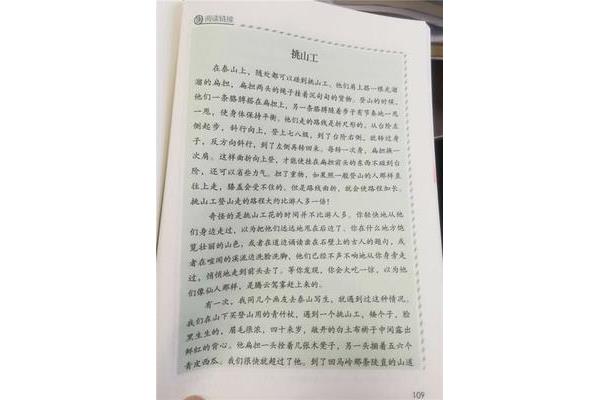 阅读链接
挑山工
在泰山上，随处都可以碰到挑山工。他们肩上搭一根光溜
溜的扁担，扁担两头的绳子挂着沉甸甸的货物。登山的时候，
他们一条胳膊搭在扁担上，另一条胳膊随着步子有节奏地一甩
一甩，使身体保持平衡。他们走的路线是折尺形的，从台阶左
侧起步，斜行向上，登上七八级，到了台阶右侧，就转过身
子，反方向斜行，到了左侧再转回来。每转一次身，扁担换一
次肩。这样曲折向上登，才能使挂在扁担前头的东西不碰到台
阶，还可以省些力气。担了重物，如果照一般登山的人那样直
往上走，膝盖会受不住的。但是路线曲折，就会使路程加长。
挑山工登山走的路程大约比游人多一倍！
奇怪的是挑山工花的时间并不比游人多。你轻快地从他
们身边走过，以为把他们远远地甩在后边了。你在什么地方饱
览壮丽的山色，或者在道边诵读凿在石壁上的古人的题句，或
者在喧闹的溪流边洗脸洗脚，他们已经不声不响地从你身旁走
过，悄悄地走到前头去了。等你发现，你会大吃一惊，以为他
们像仙人那样，是腾云驾雾赶上来的。
有一次，我同几个画友去泰山写生，就遇到过这种情况。
我们在山下买登山用的青竹杖，遇到一个挑山工，矮个子，脸
黑生生的，眉毛很浓，四十来岁，敞开的白土布褂子中间露出
鲜红的背心。他扁担一头拴着几张木凳子，另一头捆着五六个
青皮西瓜。我们很快就超过了他。到了回马岭那条陡直的山道
109